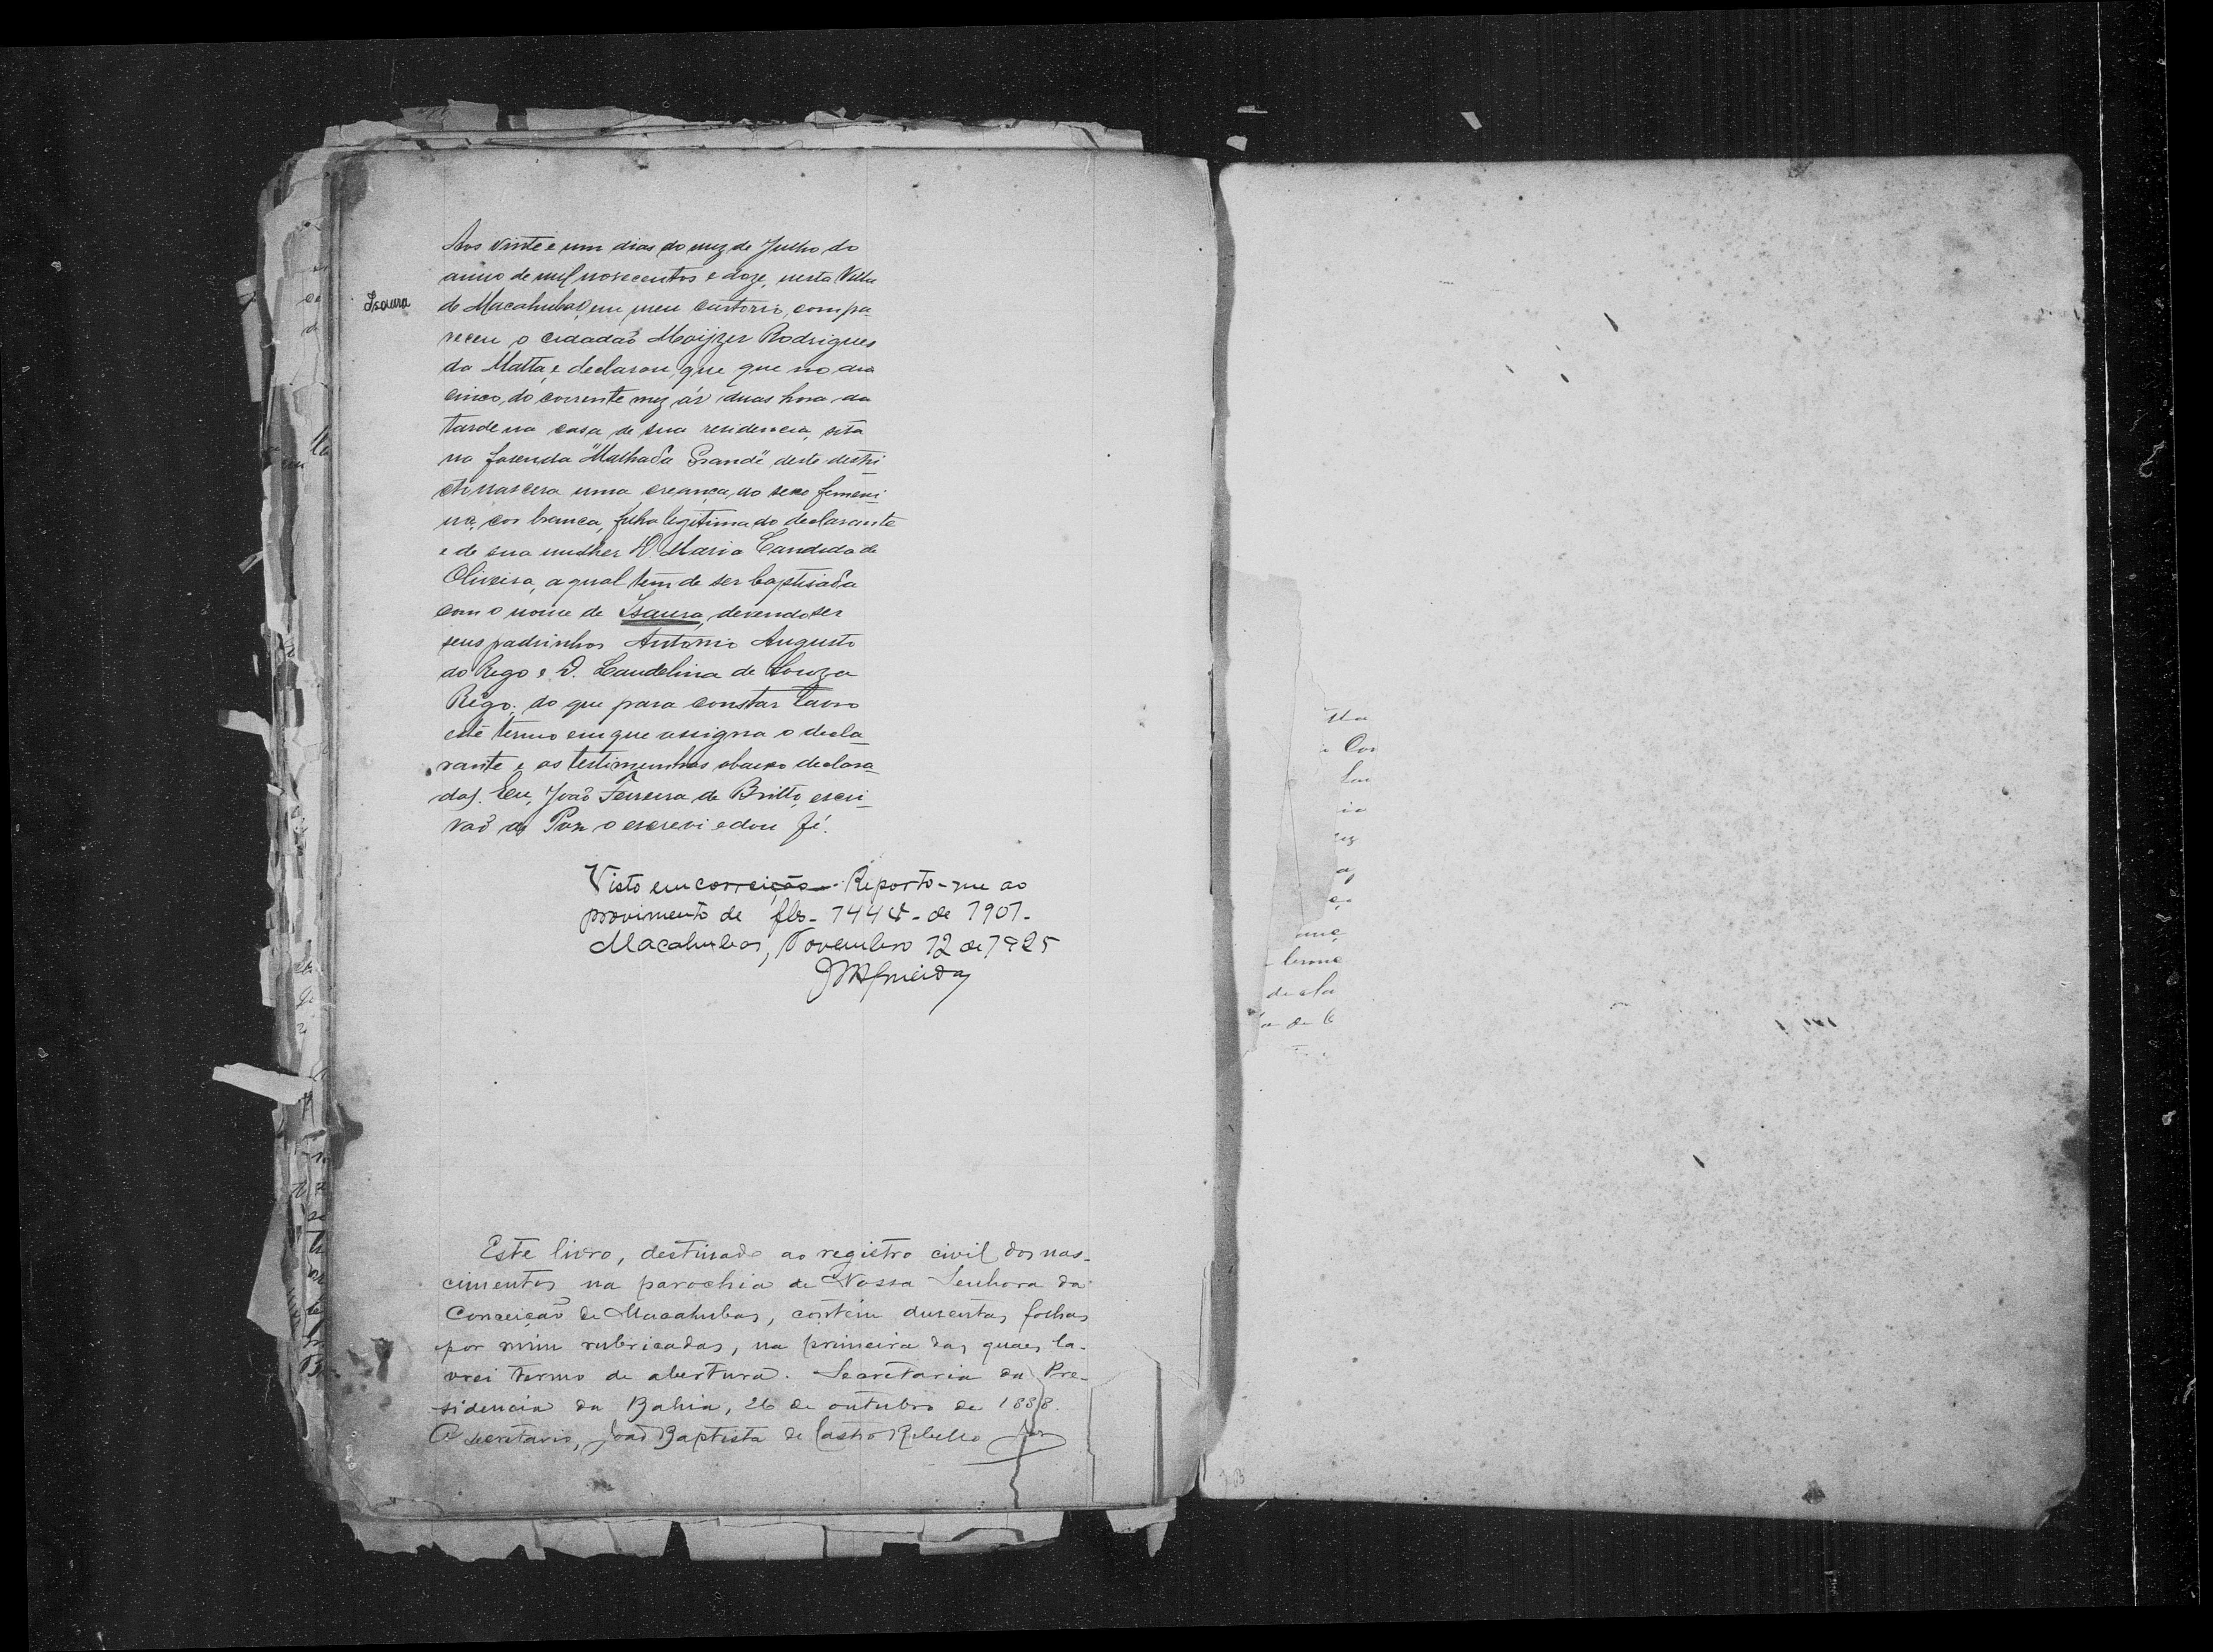 Aos vinte e um dias do mez de Julho do
anno de mil novecentos e doze, nesta Villa
Isaura
de Macahubas, em meu cartorio, compa-
receu o cidadaõ Rodrigues
da Matta, e declarou, que que no dia
cinco, do corrente mez ás duas hora da
tarde na casa de sua residencia, sita
na fasenda "Malhada Grande" deste destri-
cto nascera uma creança, do sexo femeni-
no, cor branca, filha legitima do declarante
e de sua mulher D. Maria Candida de
Oliveira, a qual tem de ser baptisada
com o nome de Isaura, devendo ser
seus padrinhos Antonio Augusto
do Rego e D. de Souza
Rego; do que para constar lavro
este termo em que assigna o decla-
rante e as testimunhas abaixo declara-
das. Eu, Joaõ Ferreira de Britto, escri-
vaõ de Paz o escrevi e dou fé.
Visto em correição. Reporto-me ao
provimento de fls. 144 v. de 1901.
Macahubas, Novembro 12 de 1925
JMAlmeida
Este livro, destinado ao registro civil dos nas-
cimentos na parochia de Nossa Senhora da
Conceição de Macahubas, contem duzentas folhas
por mim rubricadas, na primeira das quaes la-
vrei termo de abertura. Secretaria da Pre-
sidencia da Bahia, 26 de outubro de 1888.
O secretario, Joaõ Baptista de Castro Rebello Jor
termo
decla